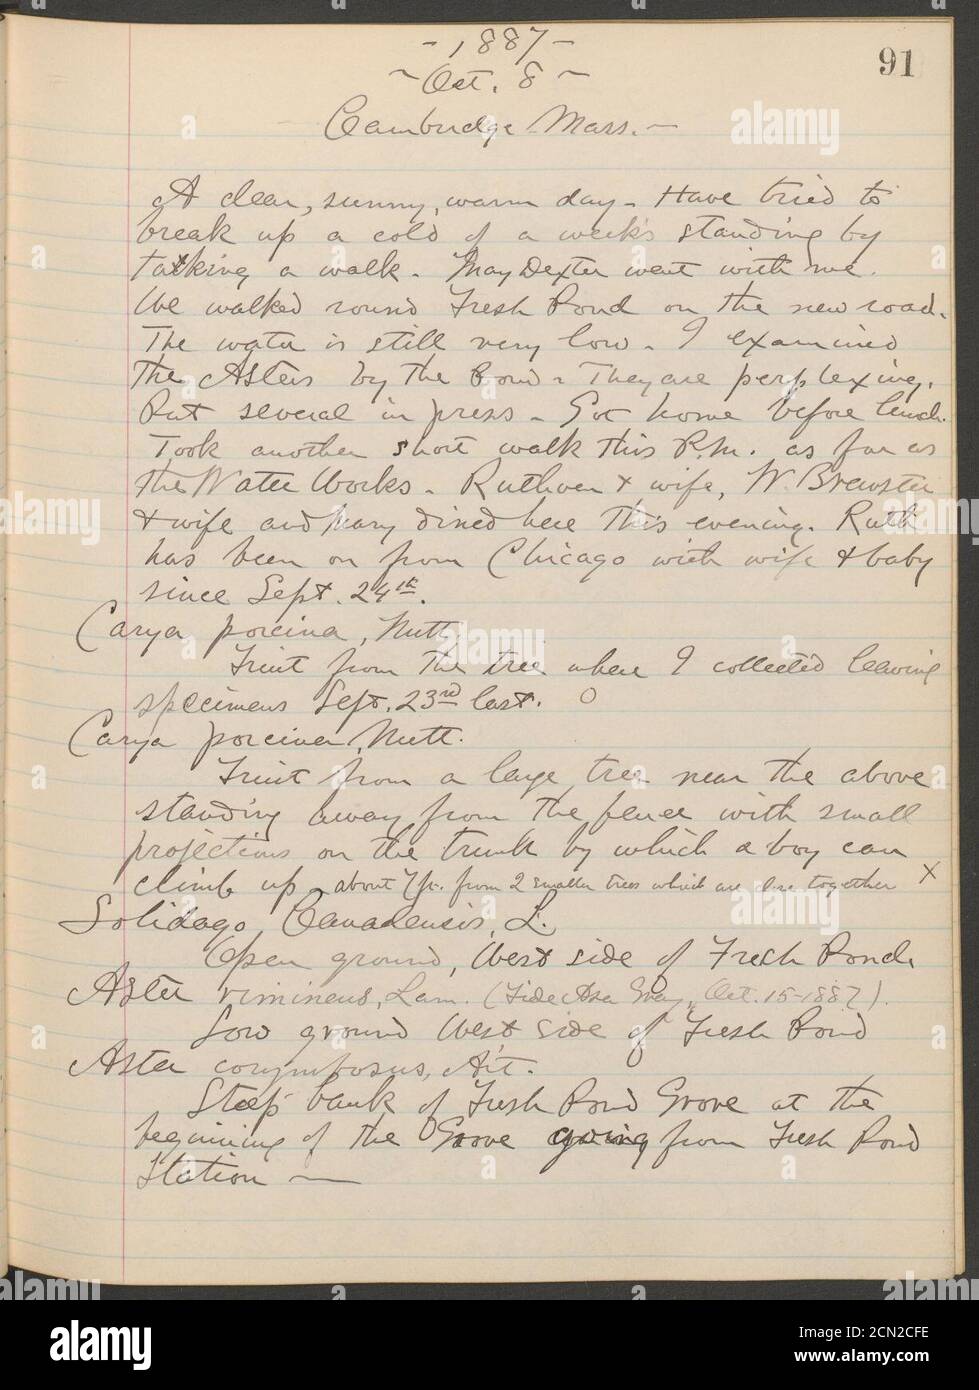 91
- 1887 -
~ Oct. 8 ~
Cambridge Mass. -
A clear, sunny, warm day - Have tried to
break up a cold of a week's standing by
taking a walk. May Dexter went with me.
We walked round Fresh Pond on the new road.
The water is still very low - I examined
the Asters by the Pond - They are perplexing.
Put several in press - Got home before lunch.
Took another short walk this P.M. as far as
the Water Works - Ruthven & wife, W. Brewster
& wife and Mary dined here this evening. Ruth
has been on from Chicago with wife & baby
since Sept. 24th.
Carya porcina, Nutt.
Fruit from the tree where I collected leaving
specimens Sept. 23rd last. O
Carya porcina, Nutt.
Fruit from a large tree near the above
standing away from the fence with small
projections on the trunk by which a boy can
climb up about 7 ft. from 2 smaller trees which are close together X
Solidago Canadensis, L.
Open ground, West side of Fresh Pond.
Aster vimineus, Lam. (Fide Asa Gray, Oct. 15-1887).
Low ground West side of Fresh Pond
Aster corymbosus, Ait.
Steep bank of Fresh Pond Grove at the
beginning of the Grove going from Fresh Pond
Station —
alamy
Image ID: 2CN2CFE
www.alamy.com